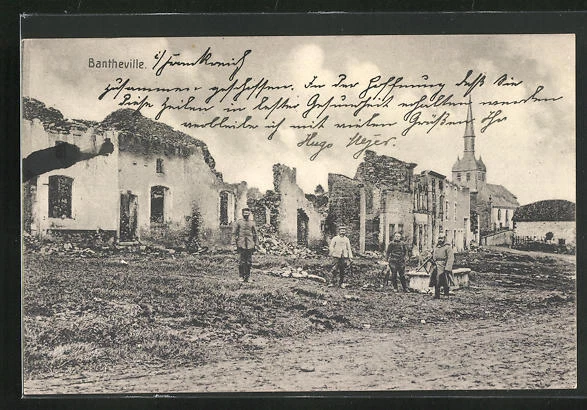 Bantheville. i/Frankreich
zusammen geschossen. In der Hoffnung daß Sie
diese Zeilen in bester Gesundheit erhalten werden
verbleibe ich mit vielen Grüßen Ihr
Hugo Meyer.